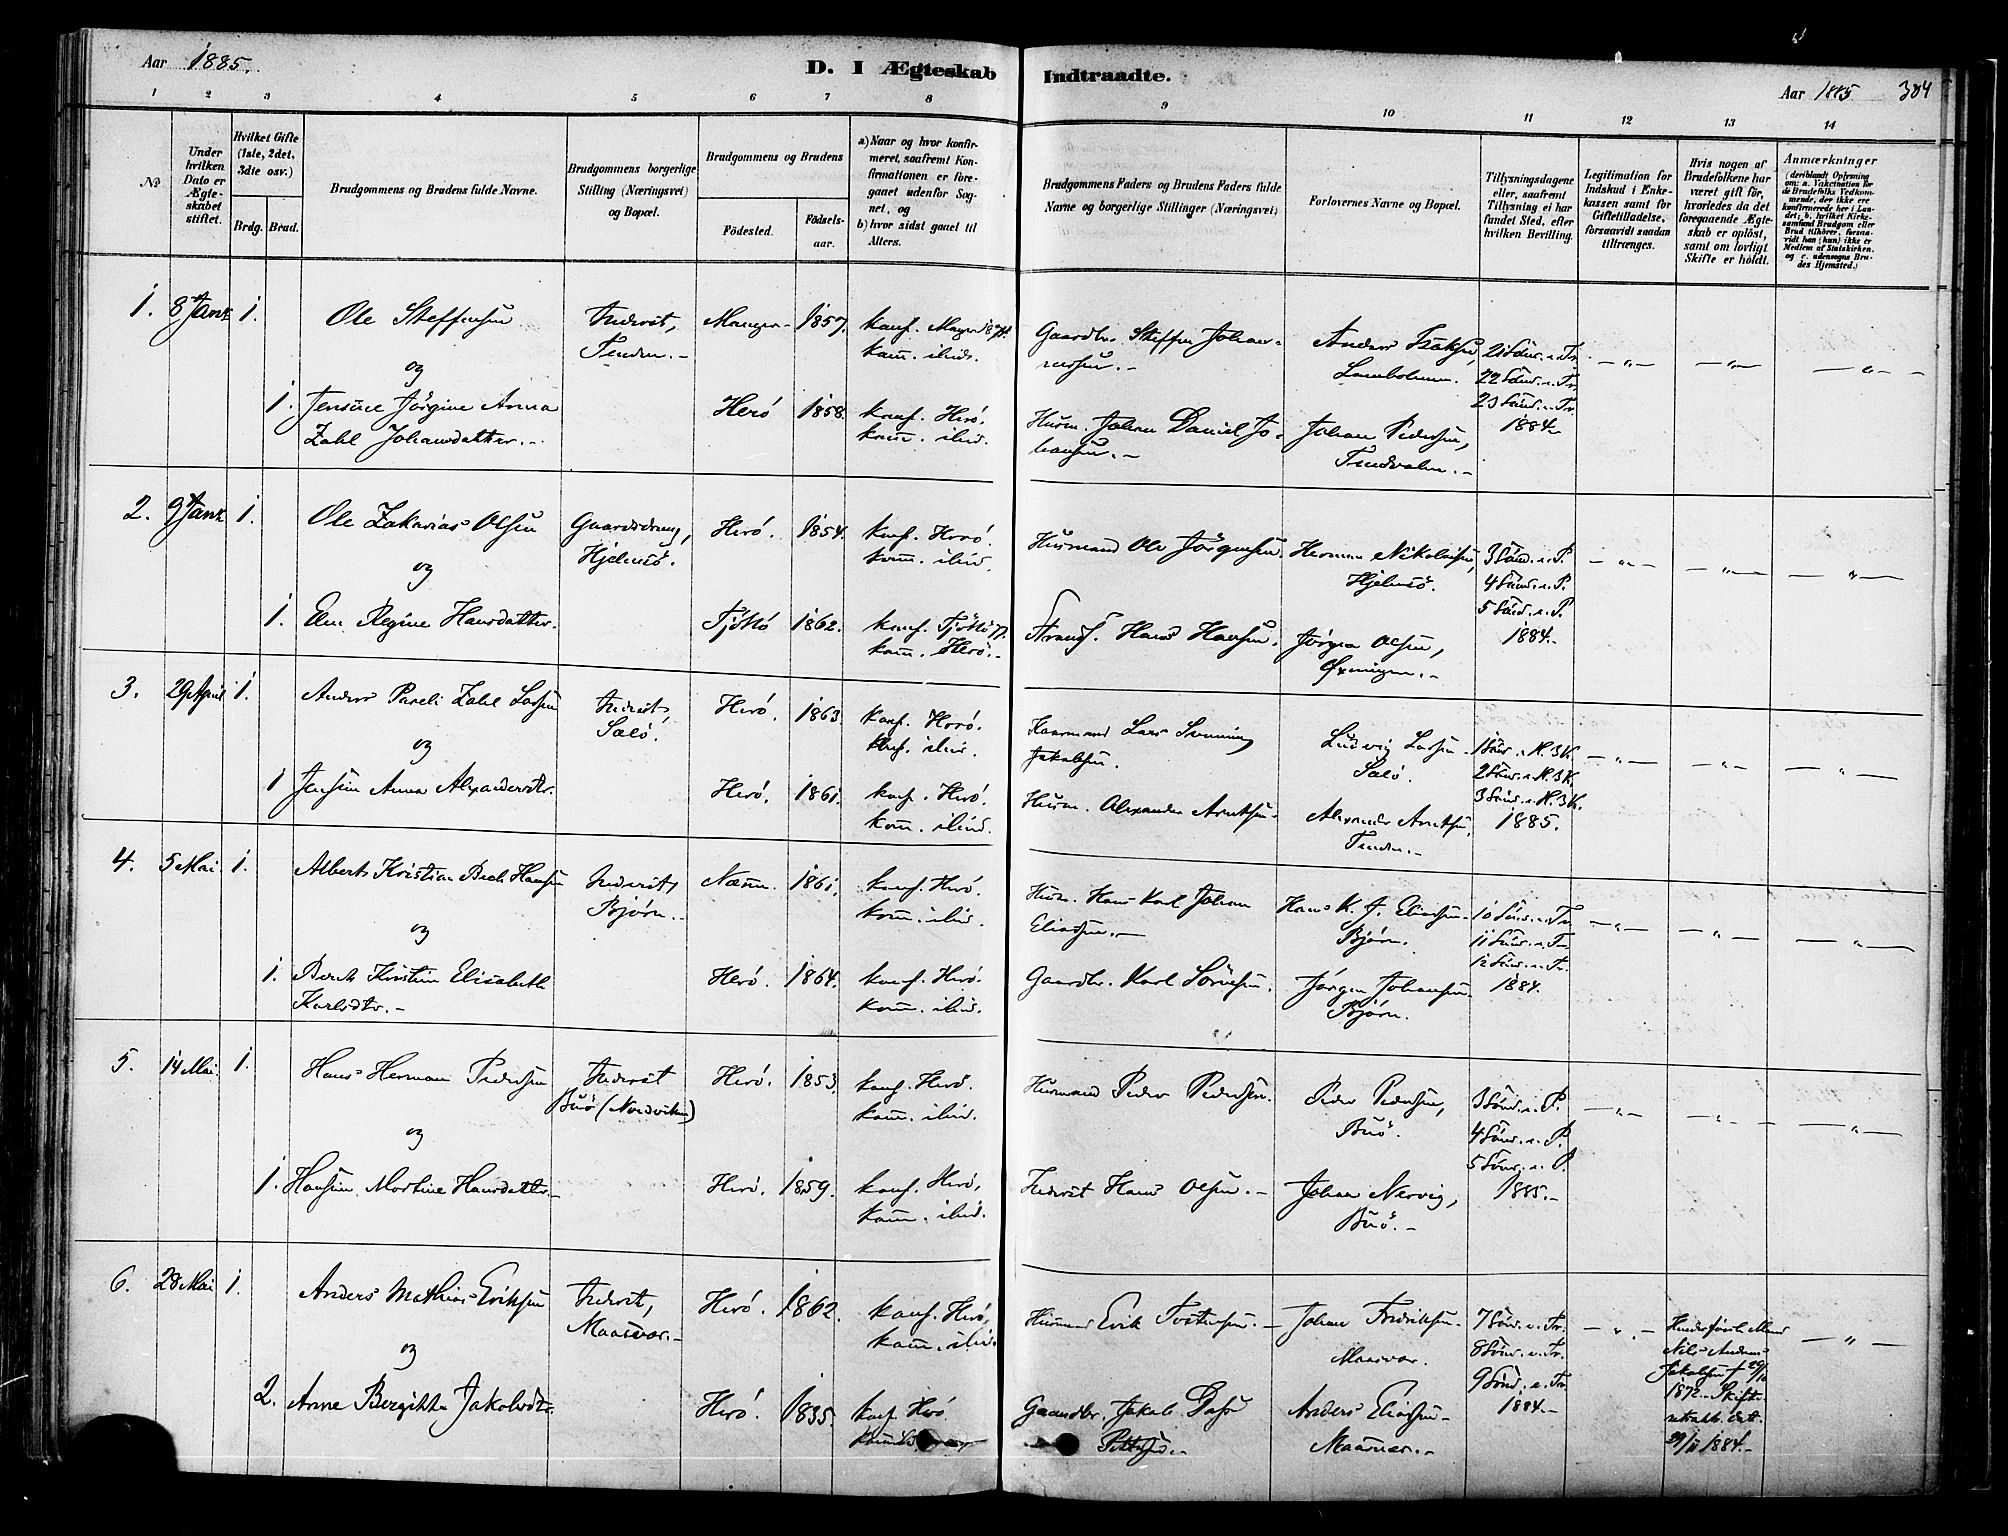 Aar 1885.
D. I Ægteskab Indtraadte.
Aar 1885 304
1 2 3 4 5 6 7 8 9 10 11 12 13 14
No.
Under hvilken Dato er Ægteskabet stiftet.
Hvilket Gifte (1ste, 2det, 3die osv.)
Brdg. Brud.
Brudgommens og Brudens fulde Navne.
Brudgommens borgerlige Stilling (Næringsvei) og Bopæl.
Brudgommens og Brudens
Födested. Födselsaar.
a) Naar og hvor konfirmeret, saafremt Konfirmationen er foregaaet udenfor Sognet, og
b) hvor sidst gaaet til Alters.
Brudgommens Faders og Brudens Faders fulde Navne og borgerlige Stillinger (Næringsvei)
Forlovernes Navne og Bopæl.
Tillysningsdagene eller, saafremt Tillysning ei har fundet Sted, efter hvilken Bevilling.
Legitimation for Indskud i Enkekassen samt for Giftetilladelse, forsaavidt saadan tiltrænges.
Hvis nogen af Brudefolkene har været gift før, hvorledes da det foregaaende Ægteskab er oplöst, samt om lovligt Skifte er holdt.
Anmærkninger
(deriblandt Oplysning om: a. Vakcination for de Brudefolks Vedkommende, der ikke ere konfirmerede her i Landet; b. hvilket Kirkesamfund Brudgom eller Brud tilhörer, forsaavidt han (hun) ikke er Medlem af Statskirken, og c. udensogns Brudes Hjemsted.)
1. 8 Janr 1. Ole Steffensen
Inderst, Tenden.
Manger 1857. konf. Manger
kom. ilid.
Gaardbr. Steffen Johannessen.
Anders Isaksen,
21 Sönd. e. Tr.
22 Sönd. e. Tr.
23 Sönd. e. Tr.
1884.
og
1. Jensine Jörgine Anna Zahl Johansdatter.
Herö 1858. konf. Herö.
kom. ilid.
Husm. Johan Daniel Johansen.
Johan Pedersen,
2. 9 Janr 1. Ole Zakarias Olsen
Gaardsdreng, Hjelmsö.
Herö. 1854. konf. Herö.
kom. ilid.
Husmand Ole Jörgensen.
Herman Nikolaisen, Hjelmsö.
3 Sönd. e. P.
4 Sönd. e. P.
5 Sönd. e. P.
1884.
og
1. Regine Hansdatter.
Tjöttö 1862. konf. Tjöttö 77.
kom. Herö.
Strands. Hans Hansen.
Jörgen Olsen, Öxningen.
3. 29 April 1. Anders Pareli Zahl Larsen
Inderst, Salö.
Herö. 1863. konf. Herö.
konf. ilid.
Kaarmand Lars Svenning Jakobsen.
Ludvig Larsen Salö.
1 Sönd. e. H. 3 K.
2 Sönd. e. H. 3 K.
3 Sönd. e. H. 3 K.
1885.
og
1 Jensine Anna Alexandersdtr.
Herö. 1861. konf. Herö.
kom. ilid.
Husm. Alexander Arntsen
Alexander Arntsen, Tenden.
4. 5 Mai 1. Albert Kristian Bech Hansen
Inderst, Björn.
Næsne. 1861. konf. Herö.
kom. ilid.
Husm. Hans Karl Johan Eliassen.
Hans K. J. Eliassen Björn.
10 Sönd. e. Tr.
11 Sönd. e. Tr.
12 Sönd. e. Tr.
1884.
og
1. Berit Kristine Elisabeth Karlsdtr.
Herö. 1864. konf. Herö.
kom. ilid.
Gaardbr. Karl Sörensen.
Jörgen Johansen Björn.
5. 14 Mai 1. Hans Herman Pedersen
Inderst Buö (Nordviken)
Herö. 1853. konf. Herö.
kom. ilid.
Husmand Peder Pedersen.
Peder Pedersen, Buö.
3 Sönd. e. P.
4 Sönd. e. P.
5 Sönd. e. P.
1885.
og
1. Hansine Martine Hansdatter.
Herö. 1859. konf. Herö,
kom. ilid.
Inderst Hans Olsen.
Johan Nervig, Buö.
6. 28 Mai 1. Anders Mathias Eriksen
Inderst, Maasvær.
Herö. 1862. konf. Herö,
kom. ilid.
Husmand Erik Tostensen.
Johan Fredriksen Maasvær.
7 Sönd. e. Tr.
8 Sönd. e. Tr.
9 Sönd. e. Tr.
1884.
Hendes förste Mand Nils Anders Jakobsen † 29/10 1872. Skifte 1884.
og
2. Anne Bergitte Jakobsdtr.
Herö. 1835. konf. Herö
Gaardbr. Jakob
Anders Eliassen Maasvær.